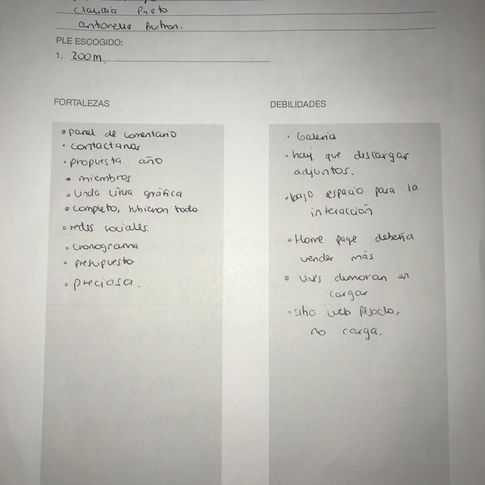 Claudia Prieto
antonella Butron.
PLE ESCOGIDO:
1. 200m
FORTALEZAS
• panel de comentario
• contactanos
• propuesta año
• miembros
• linda línea gráfica
• completo, subieron todo
• redes sociales.
• cronograma
• presupuesto
• preciosa.
DEBILIDADES
• Galeria
• hay que descargar
adjuntos.
• bajo espacio para la
interacción
• Home page debería
vender más
• demoran en
cargar
• sitio web pesado,
no carga.